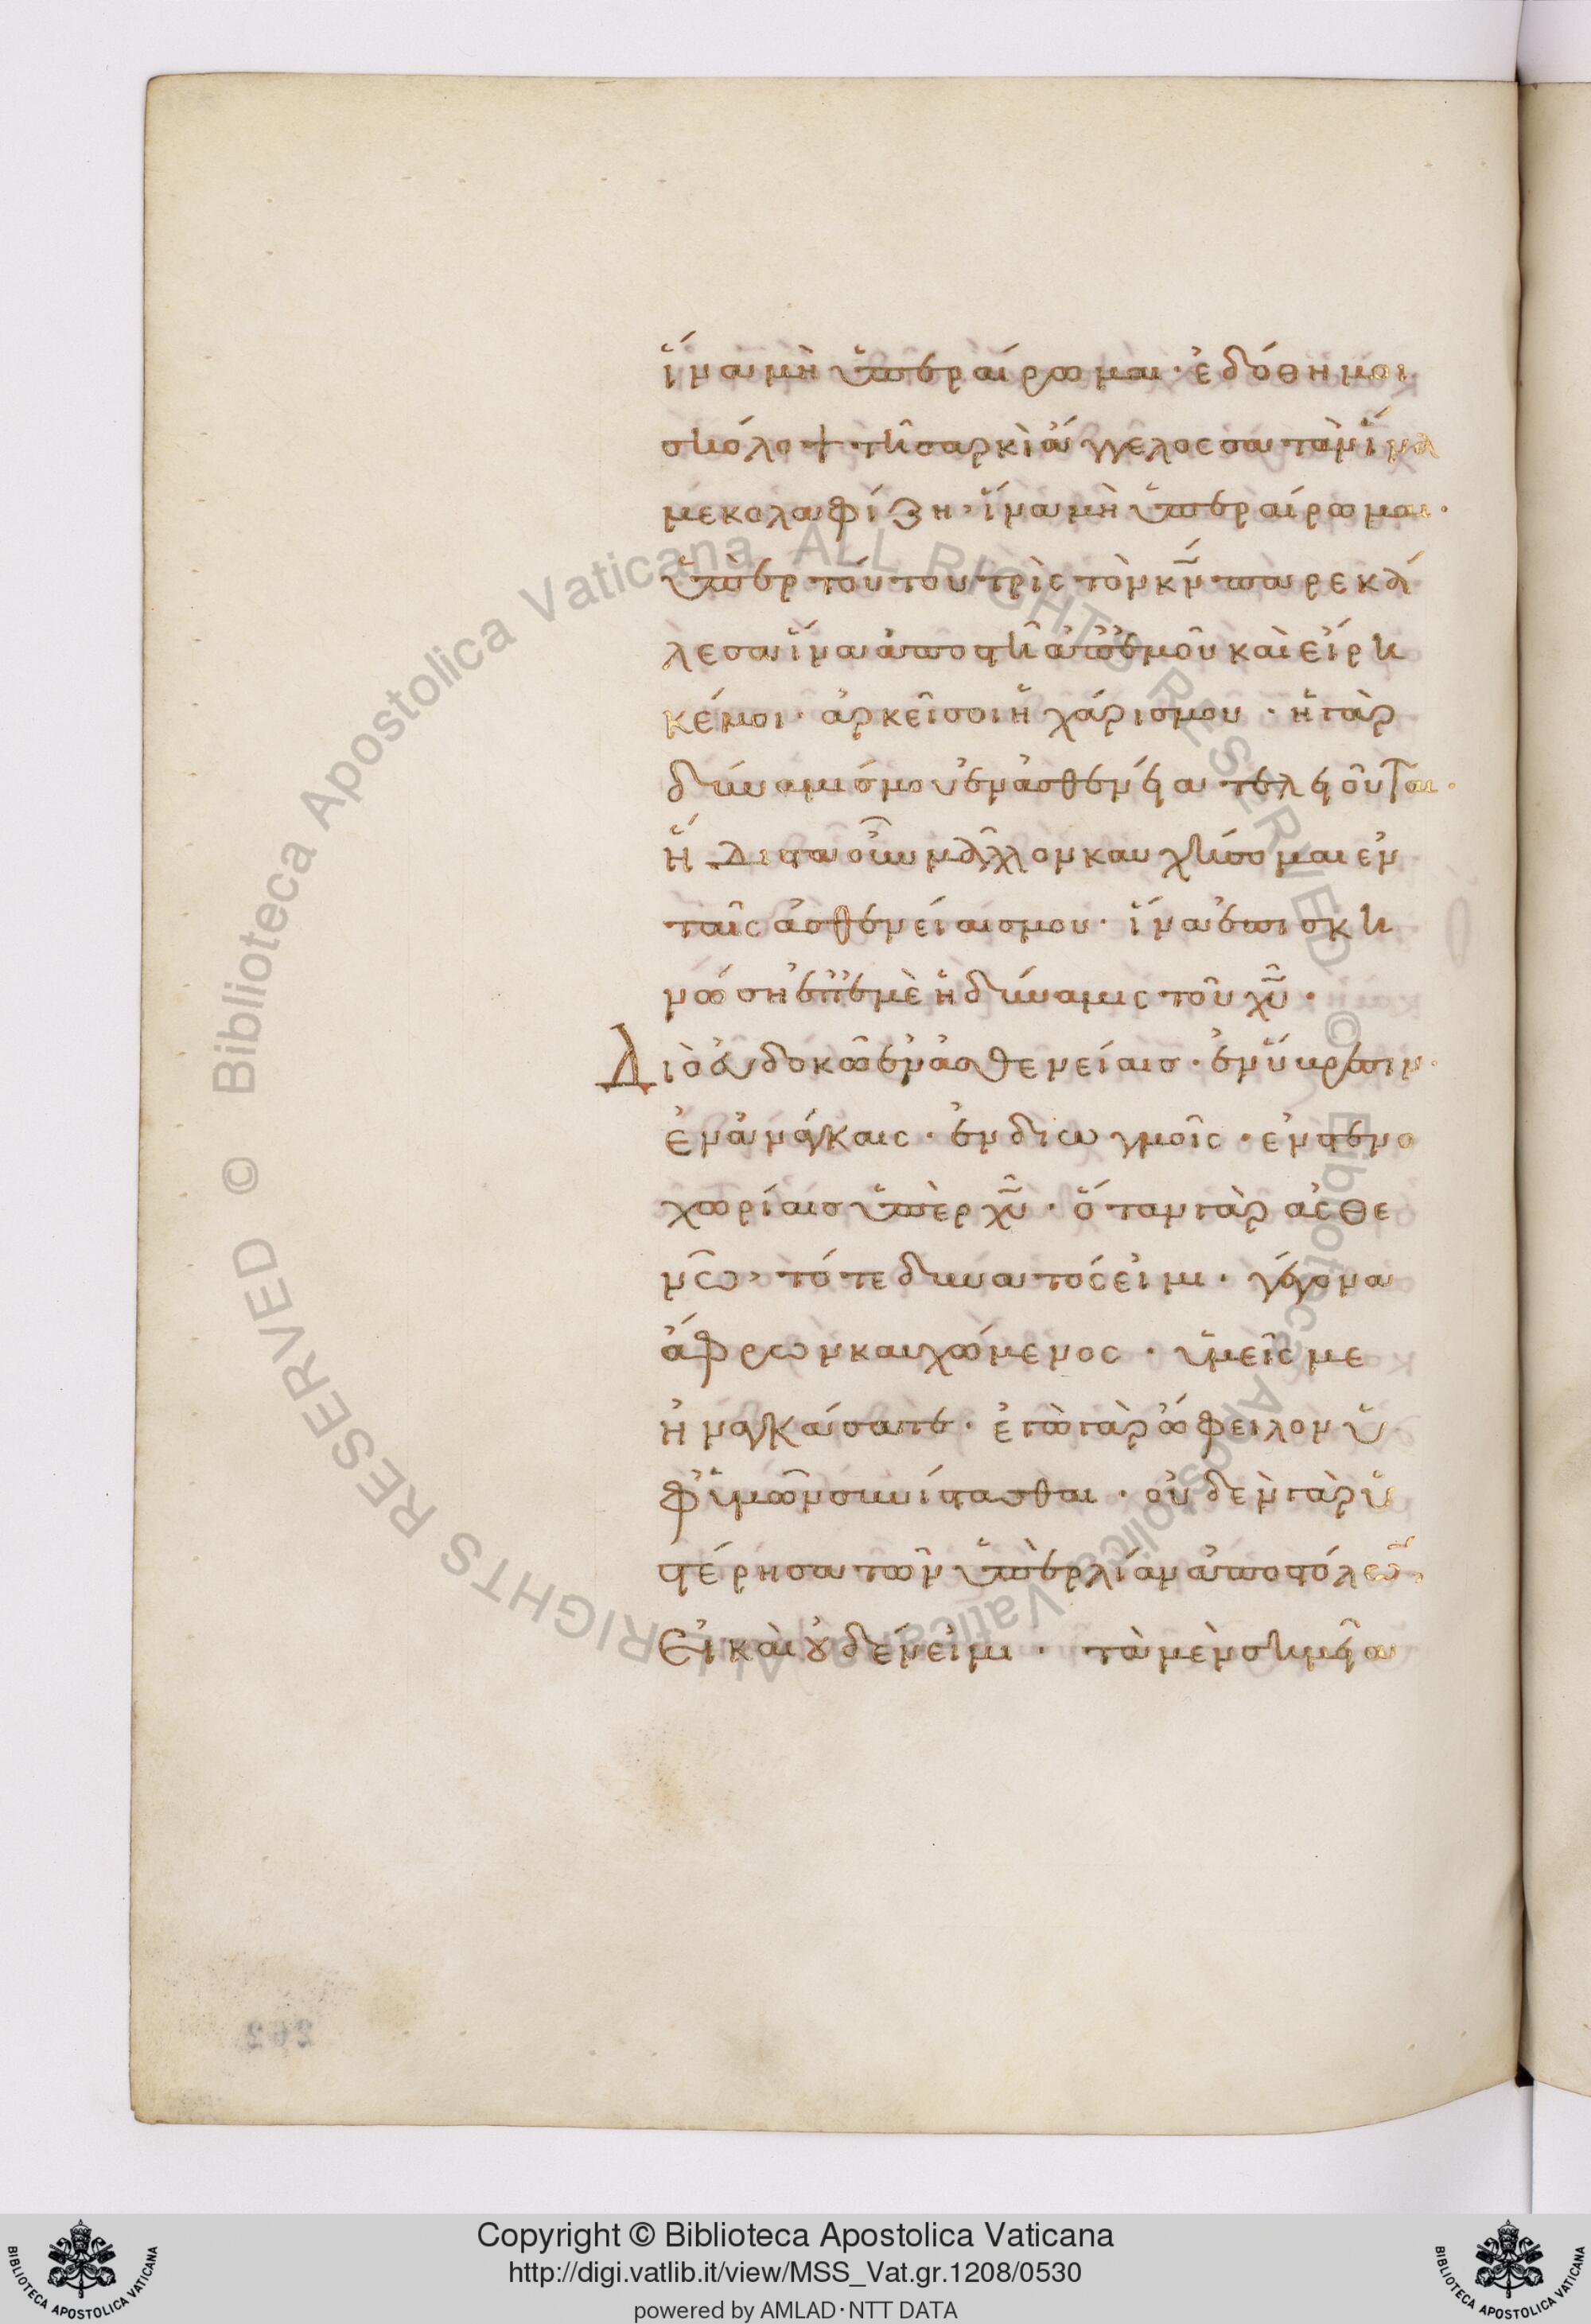 ἵνα μὴ ὑπεραίρωμαι· ἐδόθη μοι
σκόλοψ τῆ σαρκὶ ἄγγελος σατὰν ἵνα
με κολαφίζη· ἵνα μὴ ὑπεραίρωμαι·
ὑπὲρ τούτου τρὶς τὸν κν̅ παρεκά
λεσα ἵνα ἀποστῆ ἀπ' ἐμοῦ καὶ εἴρη
κέ μοι· ἀρκεῖ σοι ἡ χάρις μου· ἡ γὰρ
δύναμίς μου ἐν ἀσθενεία τελειοῦται·
ἥδιστα οὖν μᾶλλον καυχήσομαι ἐν
ταῖς ἀσθενείαις μου· ἵνα ἐπισκη
νώση ἐπ' ἐμὲ ἡ δύναμις τοῦ χυ̅·
Διὸ εὐδοκῶ ἐν ἀσθενείαις· ἐν ὕβρεσιν·
ἐν ἀνάγκαις· ἐν διωγμοῖς· ἐν στενο
χωρίαις ὑπὲρ χυ̅· ὅταν γὰρ ἀσθε
νῶ, τότε δυνατός εἰμι· γέγονα
ἄφρων καυχώμενος· ὑμεῖς με
ἠναγκάσατε· ἐγὼ γὰρ ὤφειλον ὑ
φ' ὑμῶν συνίστασθαι· οὐδὲν γὰρ ὑ
στέρησα τῶν ὑπὲρ λίαν ἀποστόλων,
Εἰ καὶ οὐδέν εἰμι· τὰ μὲν σημεῖα
262
© Biblioteca Apostolica Vaticana ALL RIGHTS RESERVED © Biblioteca Apostolica Vaticana ALL RIGHTS RESERVED
Copyright © Biblioteca Apostolica Vaticana
http://digi.vatlib.it/view/MSS_Vat.gr.1208/0530
powered by AMLAD·NTT DATA
BIBLIOTECA APOSTOLICA VATICANA
BIBLIOTECA APOSTOLICA VATICANA